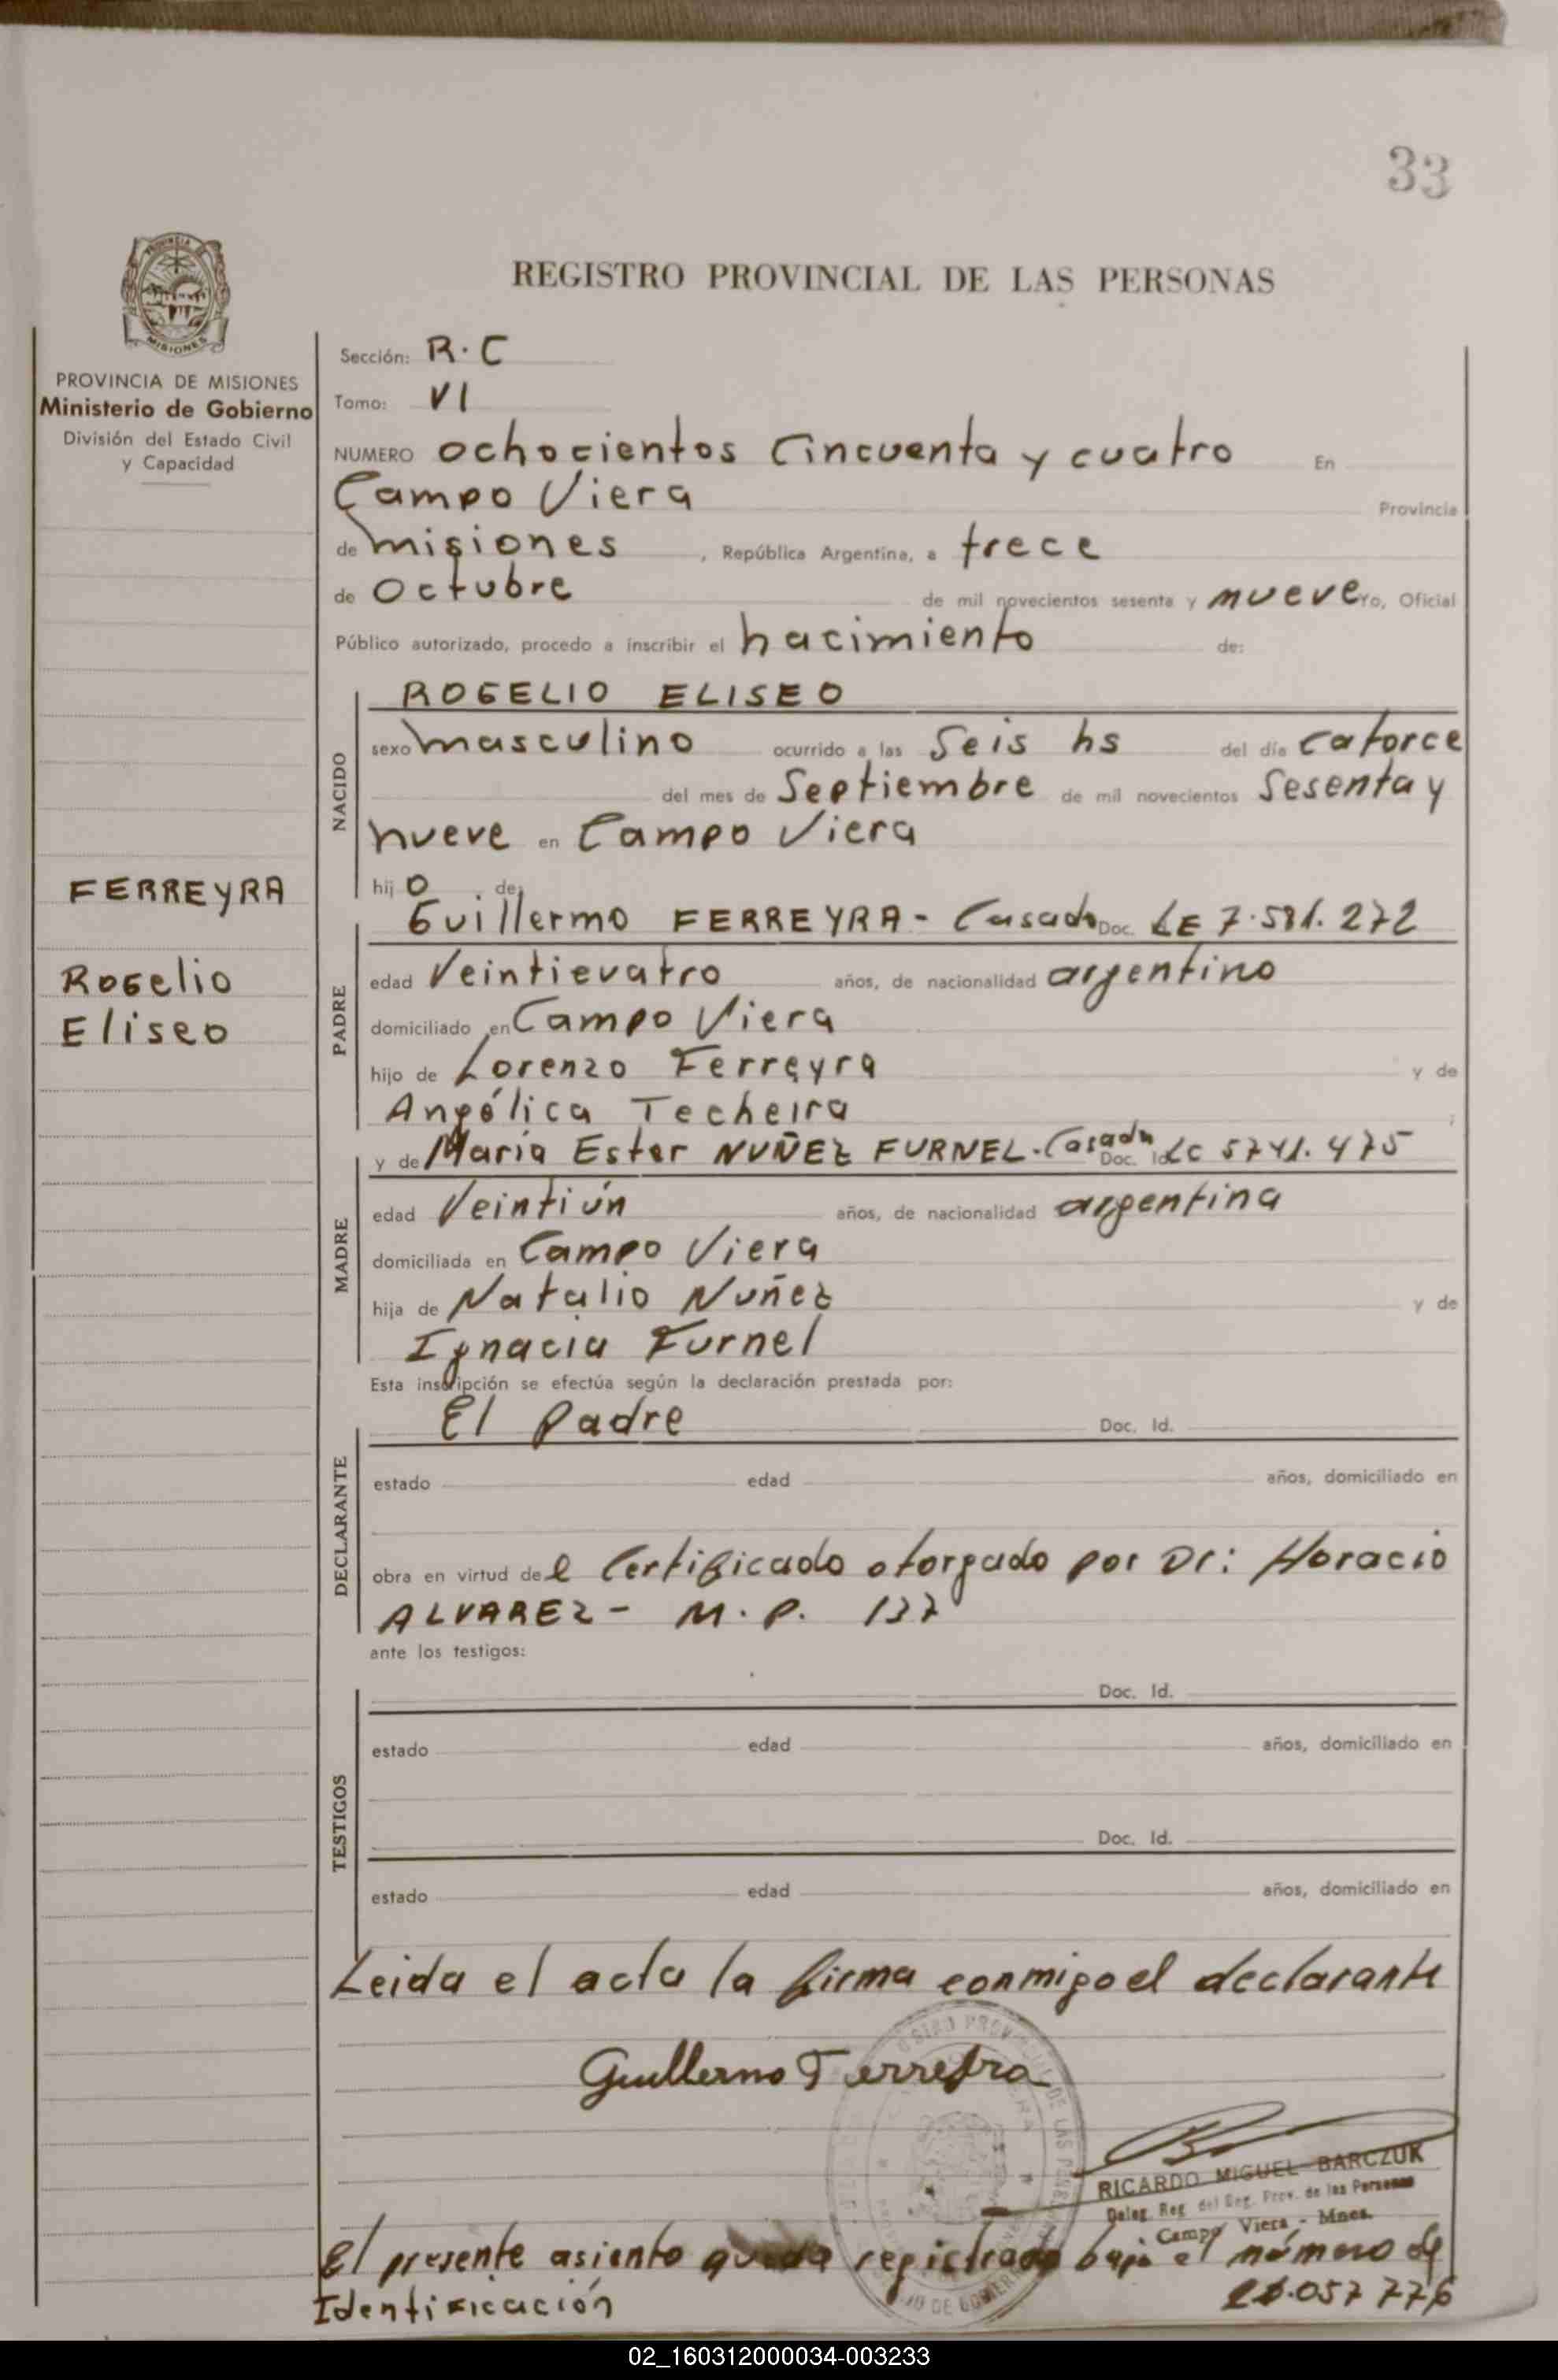 33
REGISTRO PROVINCIAL DE LAS PERSONAS
PROVINCIA DE MISIONES
Ministerio de Gobierno
División del Estado Civil
y Capacidad
FERREYRA
Rogelio
Eliseo
Sección: R.C
Tomo: VI
NUMERO ochocientos Cincuenta y cuatro En
Campo Viera Provincia
de misiones, República Argentina, a trece
de Octubre de mil novecientos sesenta y nueve Yo, Oficial
Público autorizado, procedo a inscribir el nacimiento de:
NACIDO
ROGELIO ELISEO
sexo masculino ocurrido a las Seis hs del día catorce
del mes de Septiembre de mil novecientos Sesenta y
nueve en Campo Viera
hijo de
PADRE
Guillermo FERREYRA - Casado Doc. LE 7.581.272
edad Veinticuatro años, de nacionalidad argentino
domiciliado en Campo Viera
hijo de Lorenzo Ferreyra y de
Angélica Techeira
MADRE
y de María Ester NUÑEZ FURNEL - Casada Doc. Id. LC 5741.475
edad Veintiún años, de nacionalidad argentina
domiciliada en Campo Viera
hija de Natalio Nuñez y de
Ignacia Furnel
Esta inscripción se efectúa según la declaración prestada por:
DECLARANTE
El Padre Doc. Id.
estado edad años, domiciliado en
obra en virtud del Certificado otorgado por Dr: Horacio
ALVAREZ - M.P. 137
ante los testigos:
TESTIGOS
Doc. Id.
estado edad años, domiciliado en
Doc. Id.
estado edad años, domiciliado en
Leida el acta la firma conmigo el declarante
Guillermo Ferreyra
RICARDO MIGUEL BARCZUK
Deleg. Reg. del Reg. Prov. de las Personas
Campo Viera - Mnes.
El presente asiento queda registrado bajo el número de
Identificación 20.057 776
02_160312000034-003233